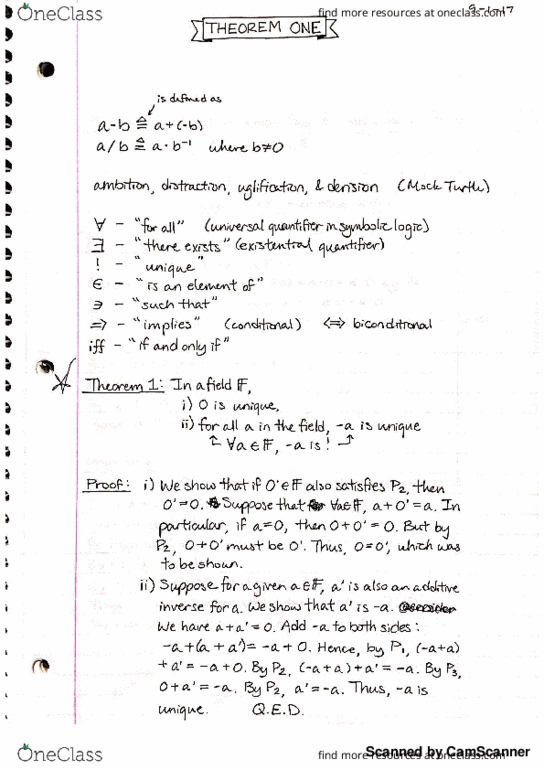 OneClass
find more resources at oneclass.com
THEOREM ONE
is defined as
a-b ≙ a+(-b)
a/b ≙ a·b⁻¹ where b≠0
ambition, distraction, uglification, & derision (Mock Turtle)
∀ – "for all" (universal quantifier in symbolic logic)
∃ – "there exists" (existential quantifier)
! – "unique"
∈ – "is an element of"
∋ – "such that"
⇒ – "implies" (conditional) ⇔ biconditional
iff – "if and only if"
Theorem 1: In a field F,
i) 0 is unique,
ii) for all a in the field, -a is unique
∀a∈F, -a is !
Proof: i) We show that if 0'∈F also satisfies P₂, then
0'=0. Suppose that ∀a∈F, a+0'=a. In
particular, if a=0, then 0+0'=0. But by
P₂, 0+0' must be 0'. Thus, 0=0', which was
to be shown.
ii) Suppose for a given a∈F, a' is also an additive
inverse for a. We show that a' is -a.
We have a+a'=0. Add -a to both sides:
-a+(a+a')=-a+0. Hence, by P₁, (-a+a)
+a'=-a+0. By P₂, (-a+a)+a'=-a. By P₃,
0+a'=-a. By P₂, a'=-a. Thus, -a is
unique. Q.E.D.
Scanned by CamScanner
OneClass
find more resources at oneclass.com